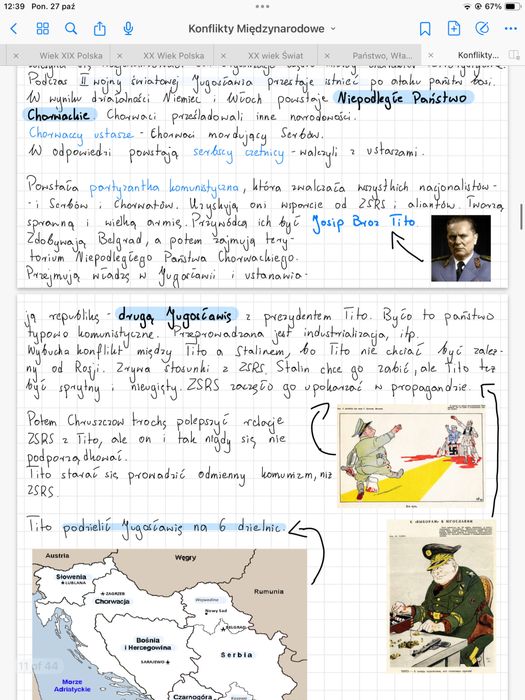 12:39 Pon. 27 paź
67%
Konflikty Międzynarodowe
Wiek XIX Polska
XX Wiek Polska
XX wiek Świat
Państwo, Wła...
Konflikty...
Podczas II wojny światowej Jugosławia przestaje istnieć po ataku państw osi.
W wyniku działalności Niemiec i Włoch powstaje Niepodległe Państwo
Chorwackie. Chorwaci prześladowali inne narodowości.
Chorwaccy ustasze - Chorwaci mordujący Serbów.
W odpowiedzi powstają serbscy czetnicy - walczyli z ustaszami.
Powstała partyzantka komunistyczna, która zwalczała wszystkich nacjonalistów -
- i Serbów i Chorwatów. Uzyskują oni wsparcie od ZSRS i aliantów. Tworzą
sprawną i wielką armię. Przywódcą ich był Josip Broz Tito.
Zdobywają Belgrad, a potem zajmują tery-
torium Niepodległego Państwa Chorwackiego.
Przejmują władzę w Jugosławii i ustanawia-
ją republikę - drugą Jugosławię z prezydentem Tito. Było to państwo
typowo komunistyczne. Przeprowadzana jest industrializacja, itp.
Wybucha konflikt między Tito a Stalinem, bo Tito nie chciał być zależ-
ny od Rosji. Zrywa stosunki z ZSRS. Stalin chce go zabić, ale Tito też
był sprytny i nieugięty. ZSRS zaczęło go upokarzać w propagandzie.
Potem Chruszczow trochę polepszył relacje
ZSRS z Tito, ale on i tak nigdy się nie
podporządkował.
Tito starał się prowadzić odmienny komunizm, niż
ZSRS.
Tito podzielił Jugosławię na 6 dzielnic.
Austria
Węgry
Słowenia
LUBLANA
ZAGRZEB
Chorwacja
Rumunia
Wojwodina
Nowy Sad
BELGRAD
Bośnia
i Hercegowina
SARAJEWO
Serbia
Morze
Adriatyckie
Czarnogóra
11 of 44